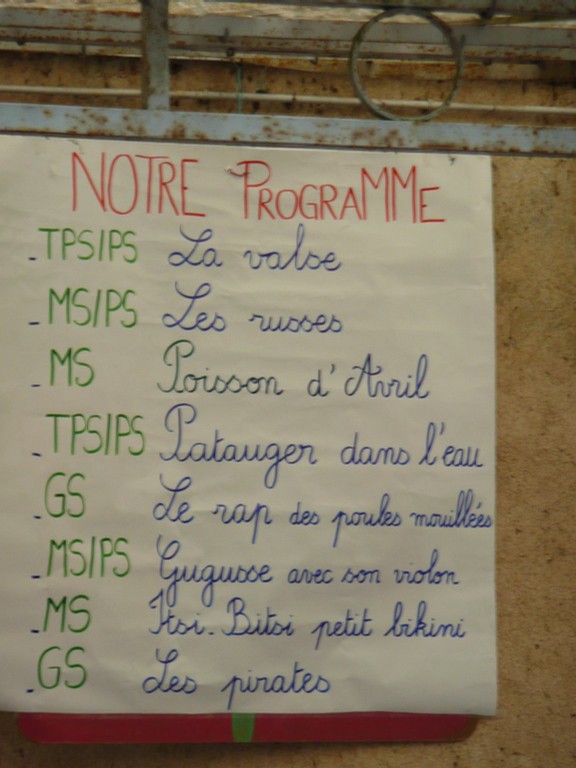 NOTRE PROGRAMME
- TPS/PS La valse
- MS/PS Les russes
- MS Poisson d'Avril
- TPS/PS Patauger dans l'eau
- GS Le rap des poules mouillées
- MS/PS Gugusse avec son violon
- MS Itsi. Bitsi petit bikini
- GS Les pirates